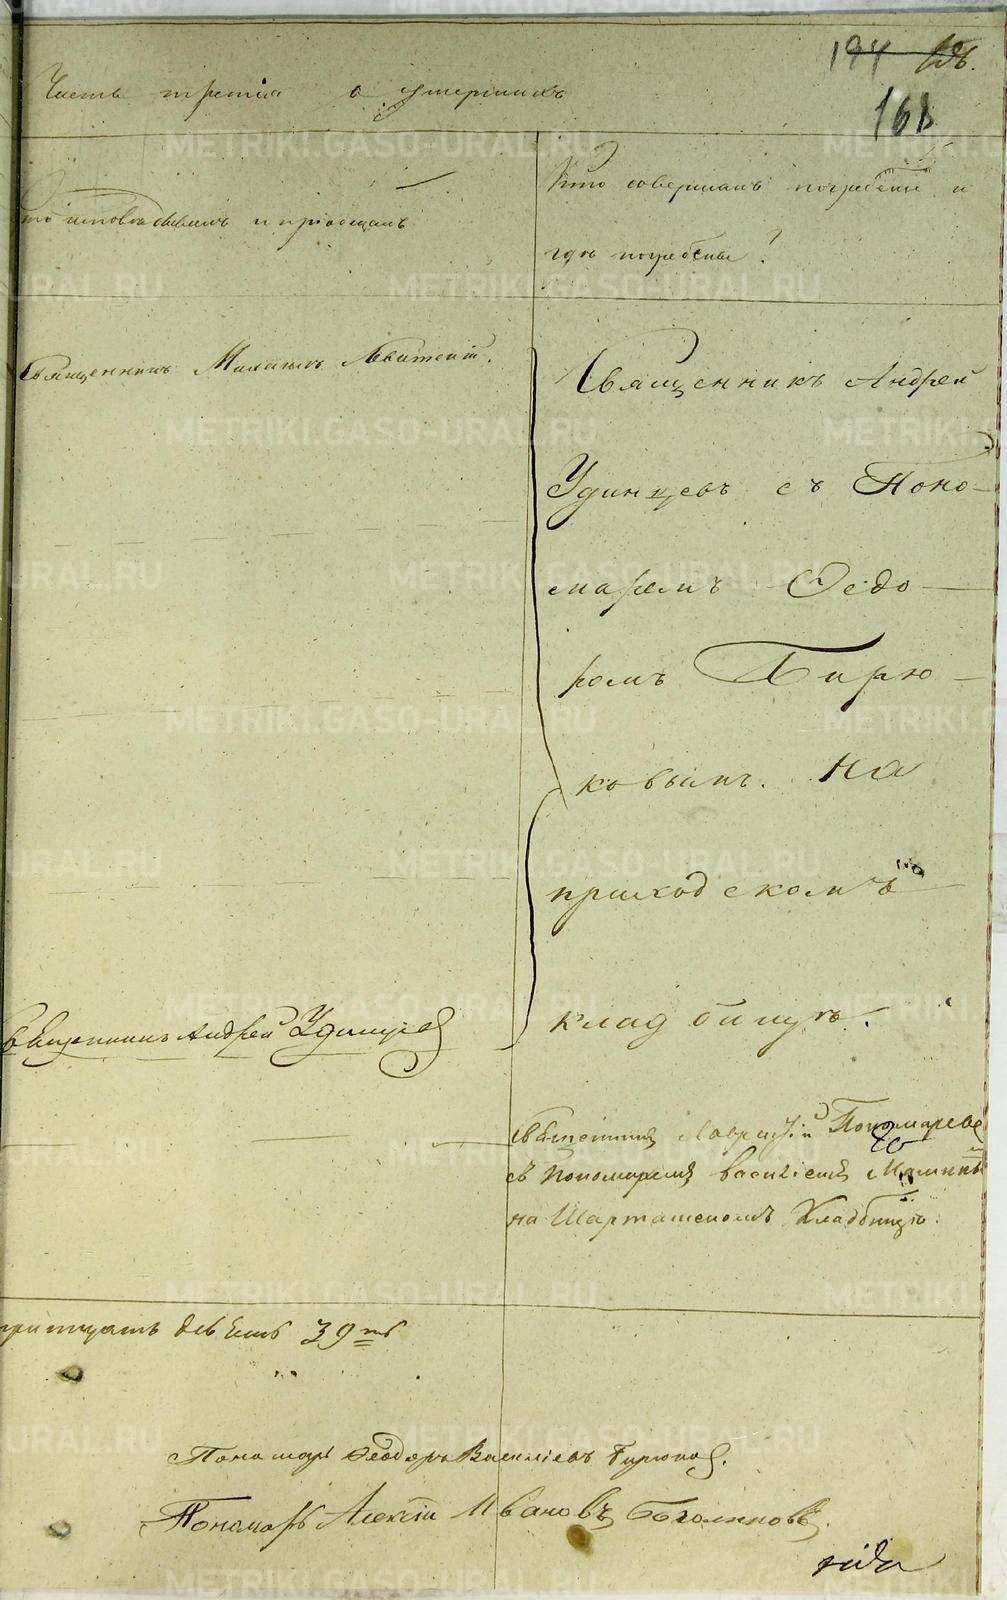 194
168
Часть третія о умершихъ
Кто исповѣдывалъ и пріобщалъ
Кто совершалъ погребеніе и
гдѣ погребены?
Священникъ
Священникъ Андрей
Удинцевъ съ Поно-
маремъ Ѳедо-
ромъ Бирю-
ковымъ. На
приходскомъ
кладбищѣ.
Священникъ Андрей Удинцевъ
Священникъ Пономаревъ
съ Пономаремъ Василіемъ
на Шарташскомъ Кладбищѣ.
тритцать девять 39ть
Пономарь Ѳеодоръ Василіевъ Бирюковъ.
Пономарь Алексій Ивановъ
METRIKI.GASO-URAL.RU